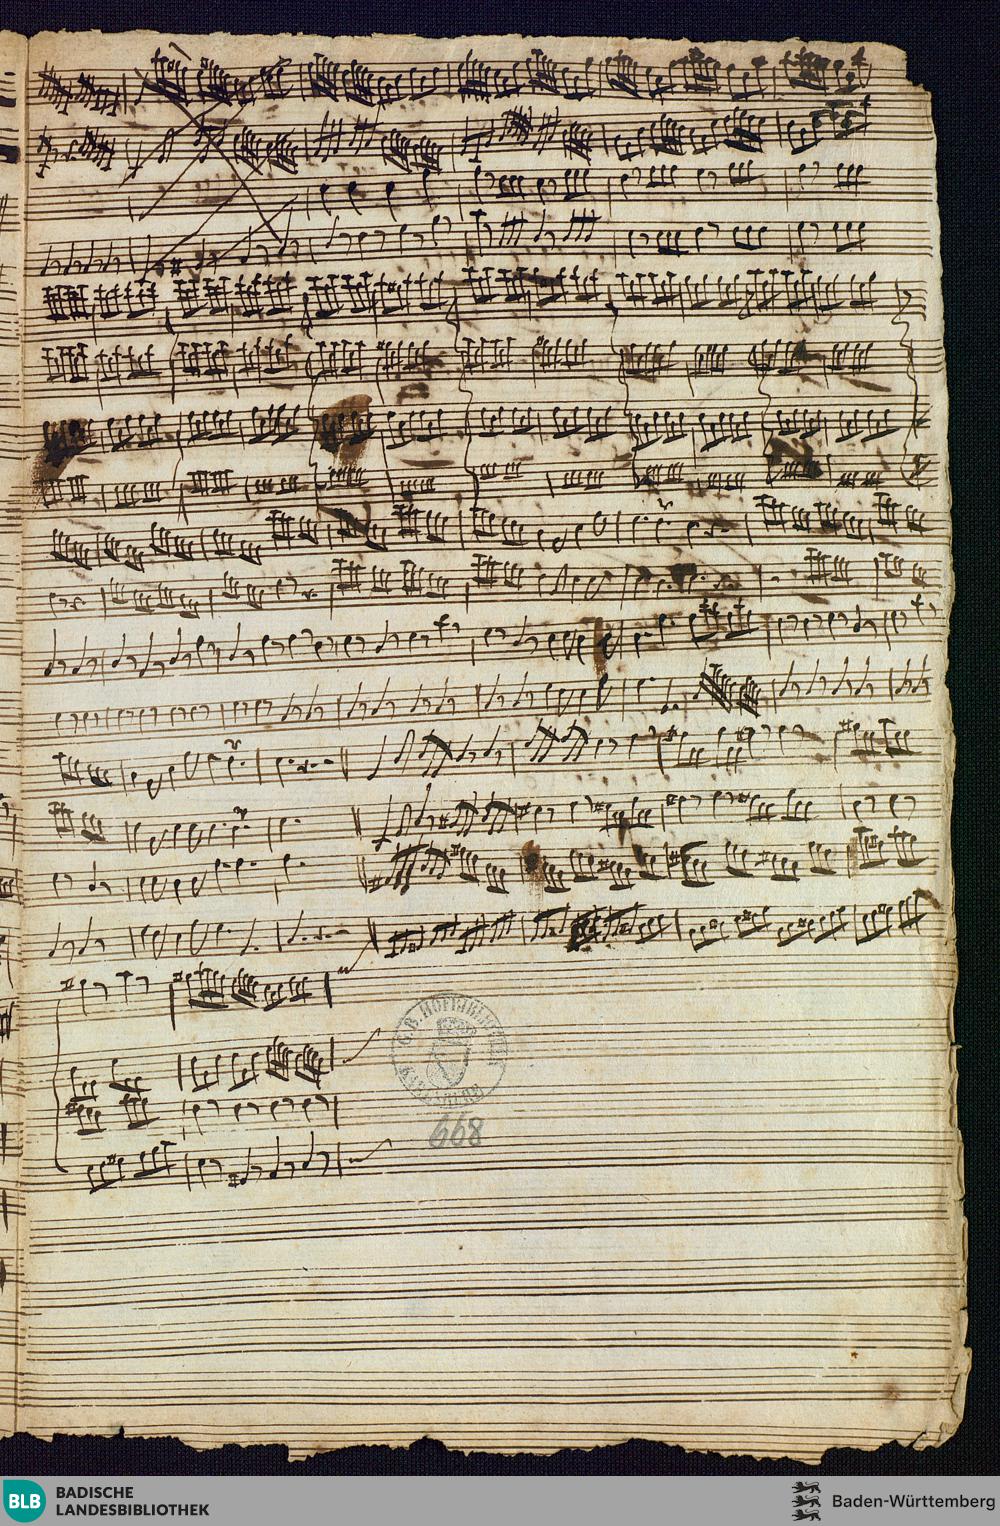 G. B. HOFBIBLIOTHEK
KARLSRUHE
668
BLB
BADISCHE
LANDESBIBLIOTHEK
Baden-Württemberg